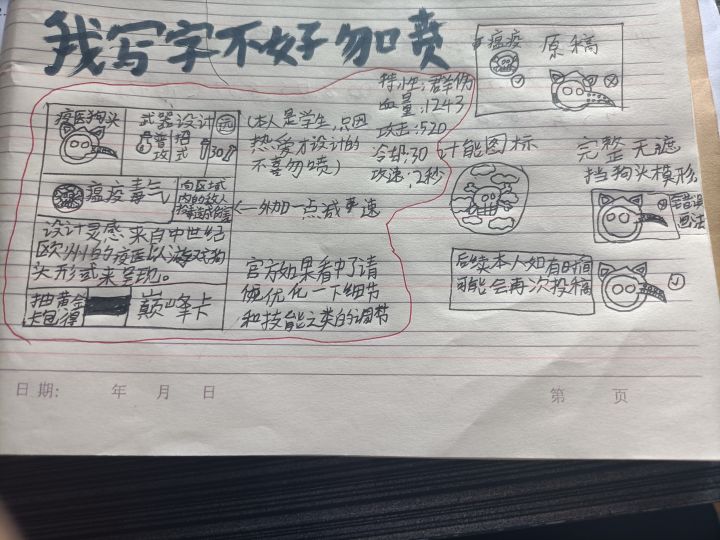 我写字不好勿喷
疫医狗头
武器设计
园
普攻
招式
30
瘟疫毒气
向区域
内的敌人
设计灵感来自中世纪
欧州的疫医以游戏狗
头形式来呈现。
抽黄金
卡包得
巅峰卡
(本人是学生,只因
热爱才设计的
不喜勿喷)
←外加一点减速
官方如果看中了请
优化一下细节
和技能之类的调节
特性:群伤
血量:1243
攻击:520
冷却:30
攻速:2秒
技能图标
瘟疫
原稿
完整无遮
挡狗头模形
错误
画法
后续本人如有时间
可能会再次投稿
日期: 年 月 日
第 页